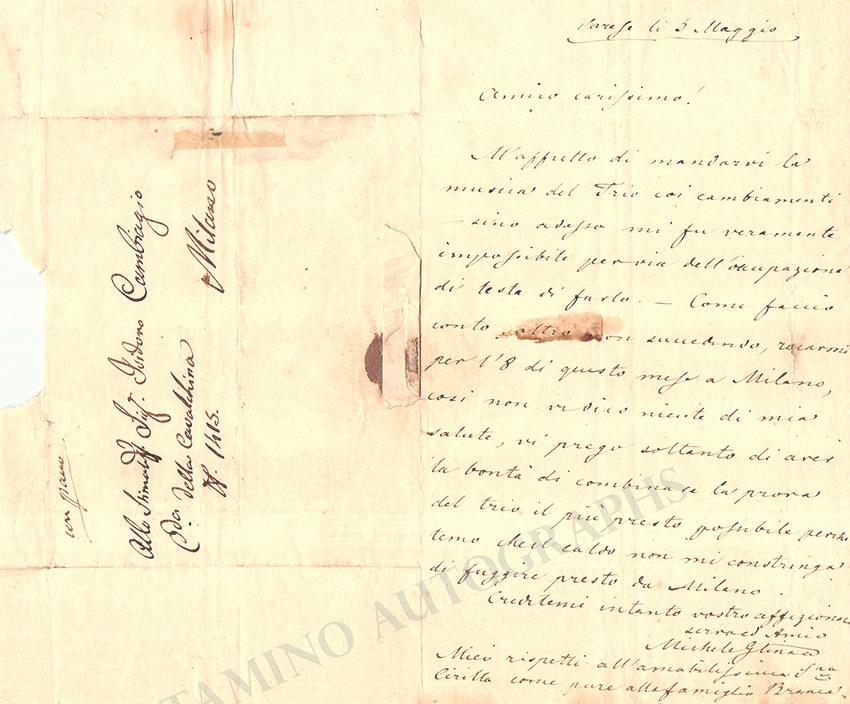 Varese li 3 Maggio
Amico carissimo!
M'affretto di mandarvi la
musica del Trio coi cambiamenti
– sino adesso mi fu veramente
impossibile per via dell'occupazione
di testa di farlo. – Come faccio
conto, altro non succedendo, recarmi
per l'8 di questo mese a Milano,
così non vi dico niente di mia
salute, vi prego soltanto di aver
la bontà di combinare la prova
del trio il più presto possibile perchè
temo che il caldo non mi constringa
di fuggire presto da Milano.
Credetemi intanto vostro affezionat
servo ed Amico
Michele Glinka
Miei rispetti all'amabilissima Sra
Cirilla come pure alla famiglia Branca.
con piano
Allo Stimatmo Sigr. Isidoro Cambiagio
Cda della Cavalchina
N. 1415.
Milano
TAMINO AUTOGRAPHS